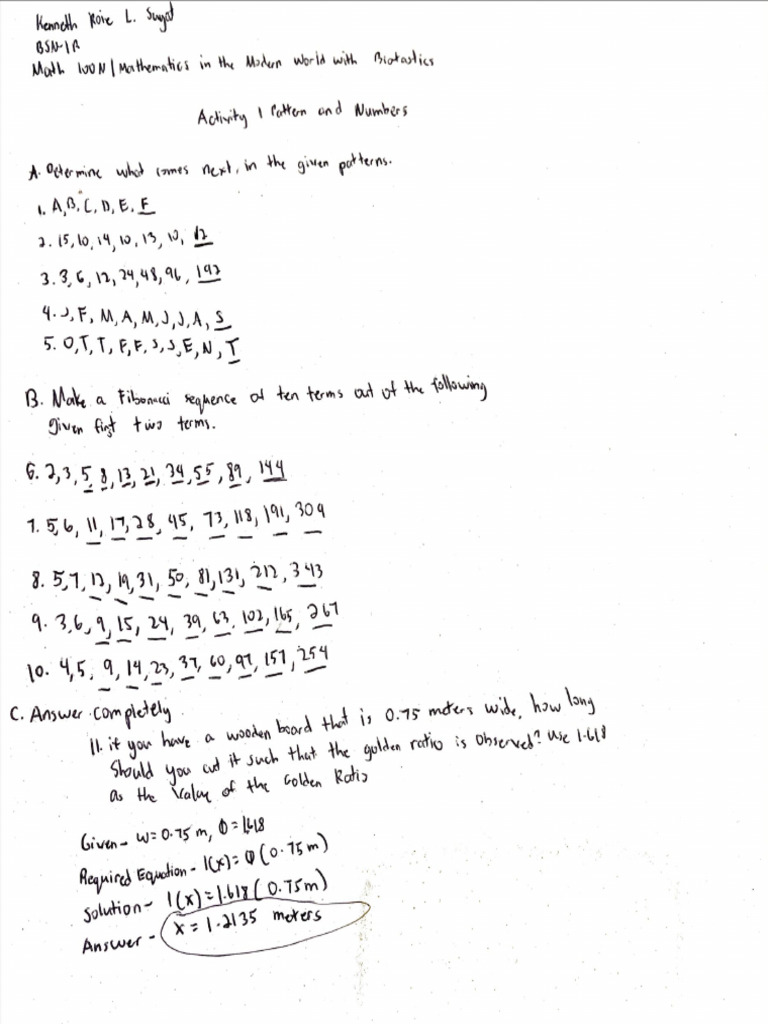 Kenneth Roie L. Suyat
BSN-1B
Math 100N/Mathematics in the Modern World with Biotastics
Activity 1 Pattern and Numbers
A. Determine what comes next, in the given patterns.
1. A, B, C, D, E, F
2. 15, 10, 14, 10, 13, 10, 12
3. 3, 6, 12, 24, 48, 96, 192
4. J, F, M, A, M, J, J, A, S
5. O, T, T, F, F, S, S, E, N, T
B. Make a Fibonacci sequence of ten terms out of the following
given first two terms.
6. 2, 3, 5, 8, 13, 21, 34, 55, 89, 144
7. 5, 6, 11, 17, 28, 45, 73, 118, 191, 309
8. 5, 7, 12, 19, 31, 50, 81, 131, 212, 343
9. 3, 6, 9, 15, 24, 39, 63, 102, 165, 267
10. 4, 5, 9, 14, 23, 37, 60, 97, 157, 254
C. Answer completely
11. if you have a wooden board that is 0.75 meters wide, how long
Should you cut it such that the golden ratio is observed? use 1.618
as the value of the Golden Ratio
Given - w = 0.75 m, Φ = 1.618
Required Equation - l(x) = Φ (0.75 m)
Solution - l(x) = 1.618 (0.75m)
Answer - x = 1.2135 meters